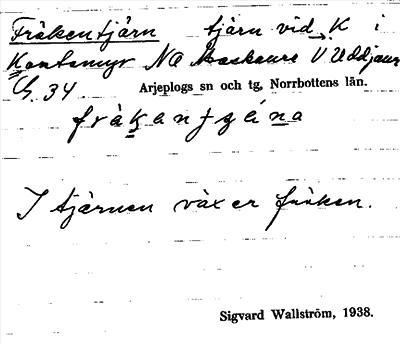 Fräkentjärn tjärn vid K i
Kontsmyr NO Maskaure V Uddjaur
G. 34 Arjeplogs sn och tg, Norrbottens län.
I tjärnen växer fräken.
Sigvard Wallström, 1938.